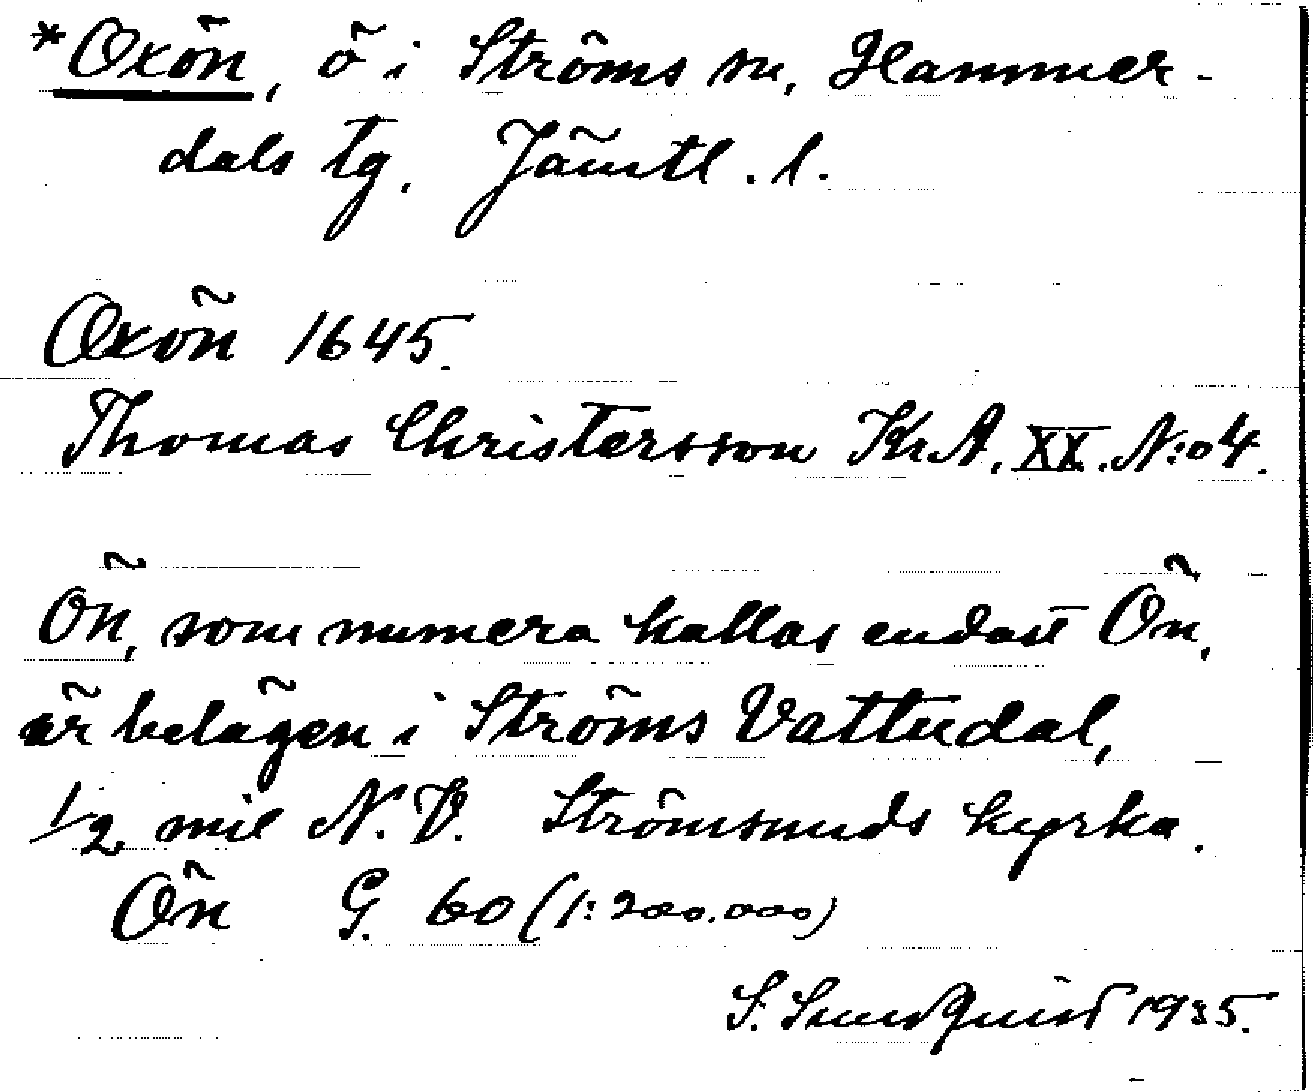 *Oxön, ö i Ströms sn, Hammer-
dals tg. Jämtl. l.
Oxön 1645.
Thomas Christersson Kr.A. XX. N:o 4.
Ön, som numera kallas endast Ön,
är belägen i Ströms Vattudal,
1/2 mil N.V. Strömsunds kyrka.
Ön G. 60 (1:200.000)
S. Sundquist 1935.